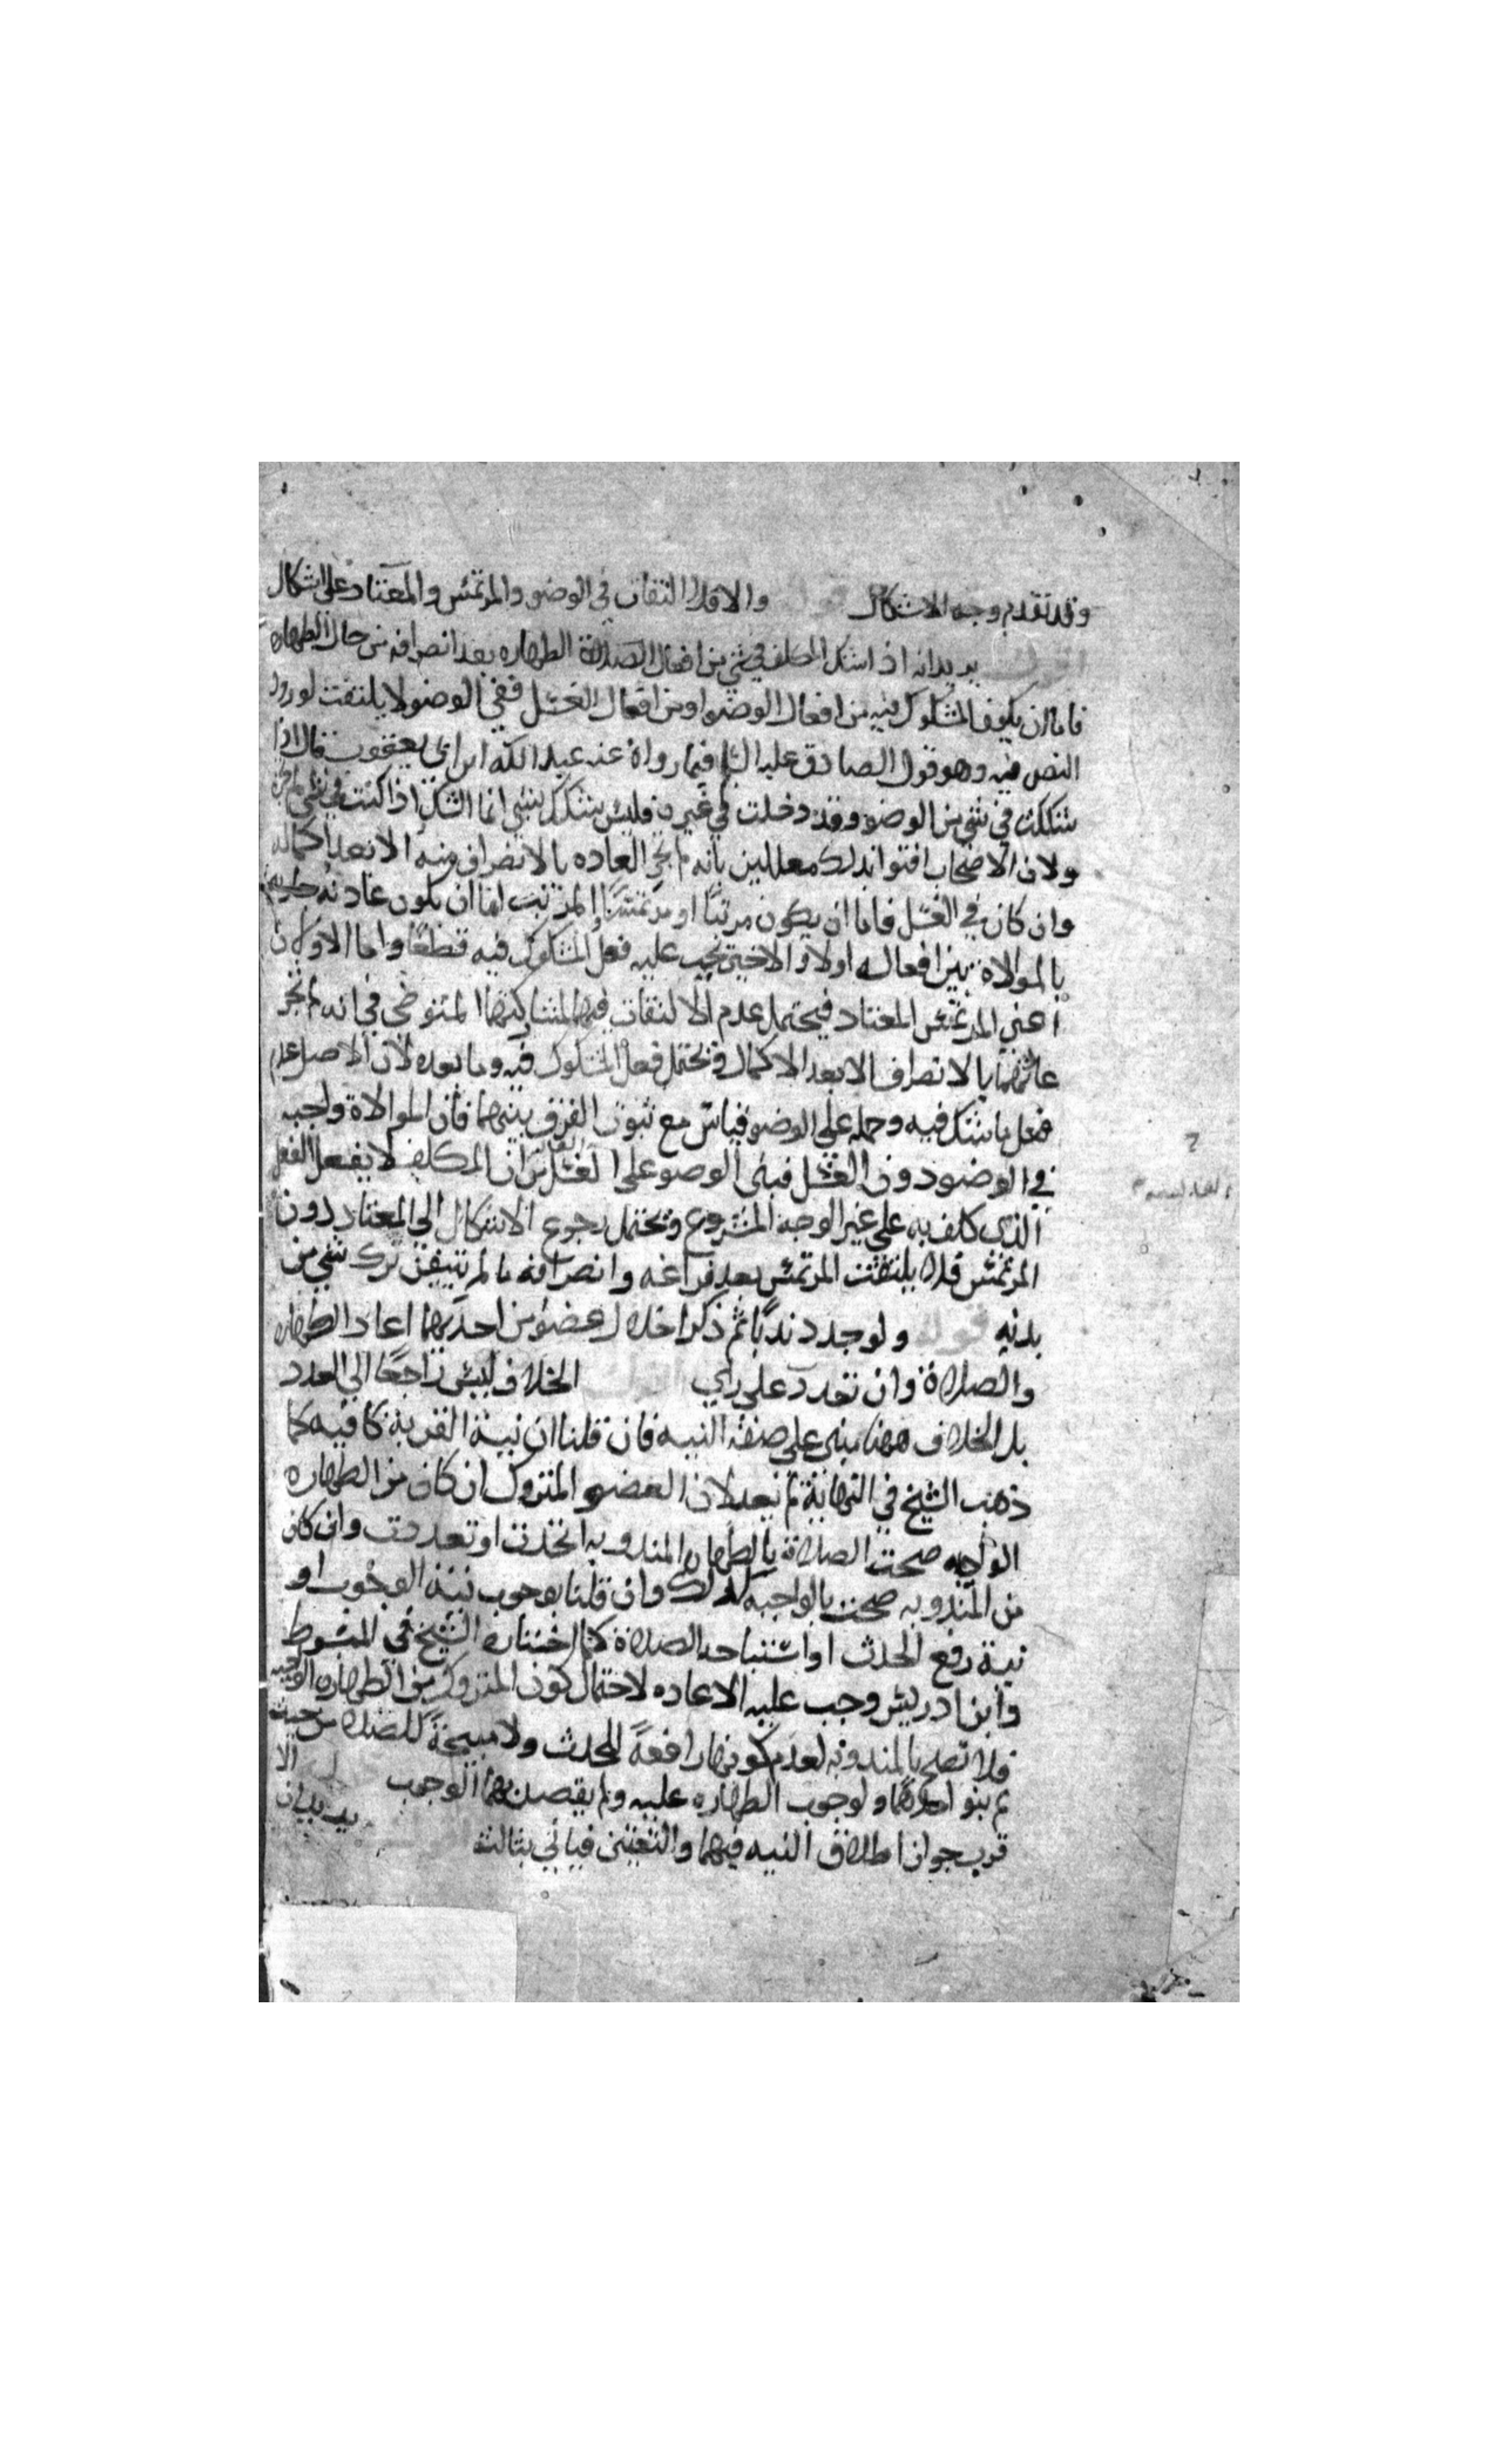 وقد تقدم وجه الاشكال قوله والا فلا التفات في الوضو والمرتمس والمعتاد على اشكال
اقول يريد انه اذا شك المكلف في شي من افعال الطهاره بعد انصرافه من حال الطهاره
فاما ان يكون المشكوك فيه من افعال الوضو او من افعال الغسل ففي الوضو لا يلتفت لورود
النص فيه وهو قول الصادق عليه السلم فيما رواه عنه عبد الله ابن ابي يعفور قال اذا
شككت في شي من الوضو وقد دخلت في غيره فليس شكك بشي انما الشك اذا كنت في شي لم تجزه
ولان الاصحاب افتوا بذلك معللين بانه لم تجر العاده بالانصراف منه الا بعد اكماله
وان كان في الغسل فاما ان يكون مرتبًا او مرتمسًا والمرتب اما ان يكون عادته
بالموالاة بين افعاله اولا والاخير يجب عليه فعل المشكوك فيه قطعًا واما الاولان
اعني المرتمس المعتاد فيحتمل عدم الالتفات فيهما لمشاركتهما المتوضي في انه لم تجر
عادتهما بالانصراف الا بعد الاكمال ويحتمل فعل المشكوك فيه وما بعده لان الاصل عدم
فعل ما شك فيه وحمله على الوضو قياس مع ثبوت الفرق بينهما فان الموالاة واجبه
في الوضو دون الغسل فبنى الوضو على الغالب من ان المكلف لا يفعل الفعل
الذى كلف به على غير الوجه المشروع ويحتمل رجوع الاشكال الى المعتاد دون
المرتمس فلا يلتفت المرتمس بعد فراغه وانصرافه ما لم يتيقن ترك شي من
بدنه قوله ولو جدد ندبًا ثم ذكر اخلال عضو من احديهما اعاد الطهاره
والصلاة وان تعدد على راي اقول الخلاف ليس راجعًا الى العدد
بل الخلاف ههنا مبنى على صفة النيه فان قلنا ان نية القربة كافيه كما
ذهب الشيخ في النهاية لم يعد لان العضو المتروك ان كان من الطهاره
الواجبه صحت الصلاة بالطهاره المندوبه اتحدت او تعددت وان كان
من المندوبه صحت بالواجبه كذلك وان قلنا بوجوب نية الوجوب او
نية رفع الحدث او استباحه الصلاة كما اختاره الشيخ في المبسوط
وابن ادريس وجب عليه الاعاده لاحتمال كون المتروك من الطهاره الواجبه
فلا تصح بالمندوبه لعدم كونها رافعةً للحدث ولا مبيحةً للصلاه من حيث
لم ينو احدهما ولوجوب الطهاره عليه ولم يقصد بهما الوجوب قوله الا
قرب جواز اطلاق النيه فيهما والتعيين فياتي بثالثه يريد ان